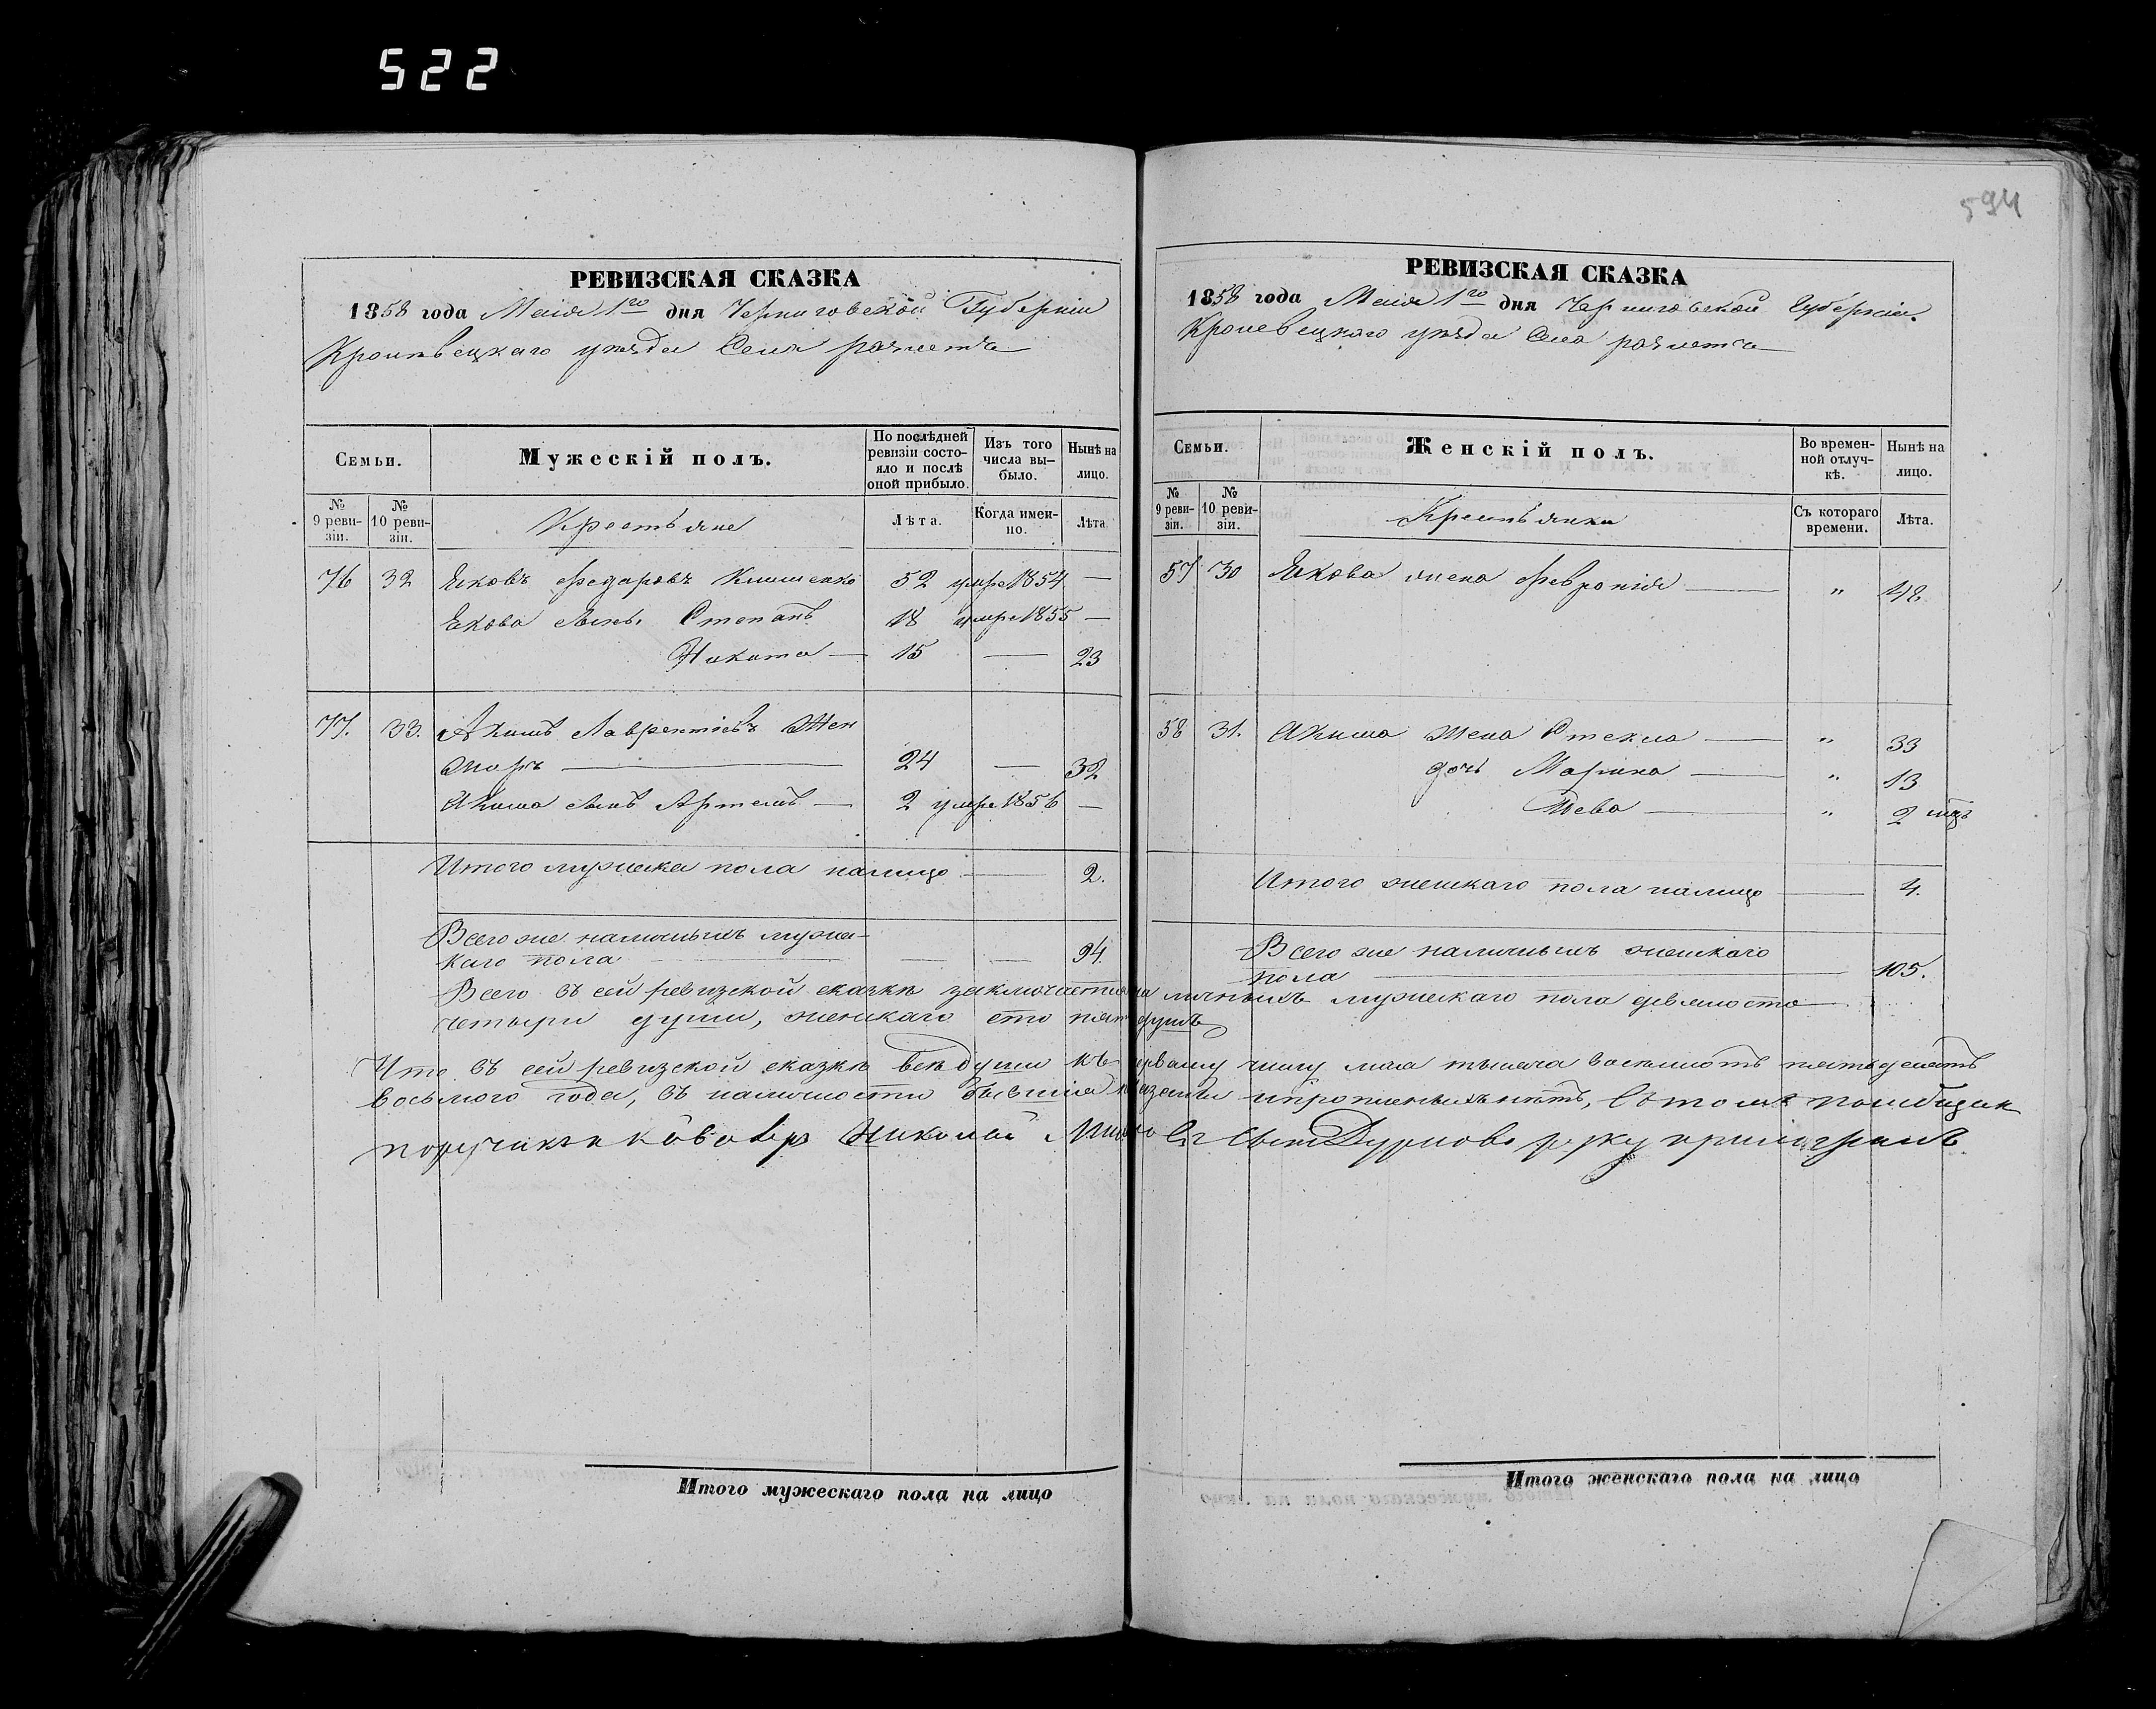 522
594
РЕВИЗСКАЯ СКАЗКА
1858 года Маія 1го дня Черниговской Губерніи
Кролѣвецкаго уѣзда Села
Семьи.
Мужескій полъ.
По послѣдней ревизіи состояло и послѣ оной прибыло.
Изъ того числа выбыло.
Нынѣ на лицо.
№ 9 ревизіи.
№ 10 ревизіи.
Крестьяне
Лѣта.
Когда именно.
Лѣта
76 32 Яковъ Федаровъ Клишенко 52 умре 1854 —
Якова сынъ Степанъ 18 умре 1855 —
Никита — 15 — 23
77. 33. Акимъ Лаврентіевъ
24 — 32
Акима сынъ Артемъ — 2 умре 1856 —
Итого мужеска пола налицо — 2.
Всего же наличныхъ мужес-
каго пола — — 94.
РЕВИЗСКАЯ СКАЗКА
1858 года Маія 1го дня Черниговской Губерніи.
Кролевецкаго уѣзда Села
Семьи.
Женскій полъ.
Во временной отлучкѣ.
Нынѣ на лицо.
№ 9 ревизіи.
№ 10 ревизіи.
Крестьянки
Съ котораго времени.
Лѣта.
57 30 Якова жена Февронія — " 48
58 31. Акима жена — " 33
дочь Марина — " 13
— " 2 мѣц
Итого женскаго пола налицо — 4.
Всего же наличныхъ женскаго
пола — 105.
Всего въ сей ревизской сказкѣ заключается наличныхъ мужескаго пола девяносто
четыри души, женскаго сто пять душъ
Что въ сей ревизской сказкѣ всѣ души къ первому числу мая тысяча восемьсотъ пятьдесятъ
восьмого года, въ наличности бывшіе показаны ипрописныхъ нѣтъ, Въ томъ помѣщик
поручикъ и Николай Дурново руку приложилъ.
Итого мужескаго пола на лицо
Итого женскаго пола на лицо